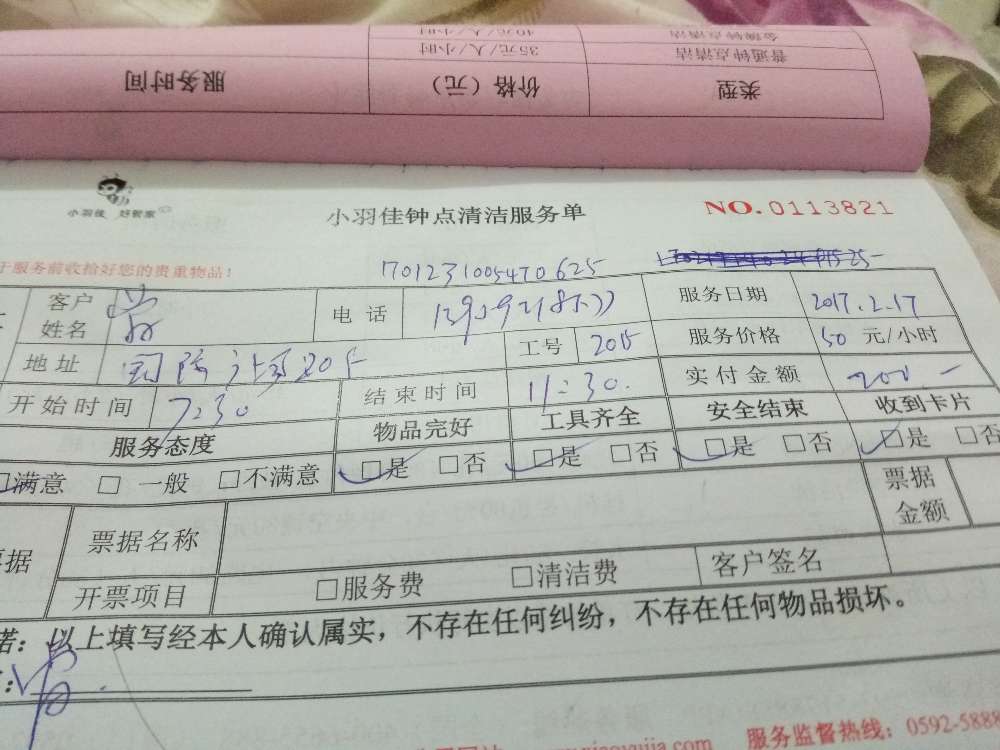 类型 价格（元） 服务时间
普通钟点清洁 35元/人/小时
金牌钟点清洁 40元/人/小时
小羽佳 好管家
小羽佳钟点清洁服务单 NO.0113821
于服务前收拾好您的贵重物品！ 1701231005470625
客户姓名 电话 服务日期 2017.2.17
地址 工号 2015 服务价格 50 元/小时
开始时间 7:30 结束时间 11:30. 实付金额 200.-
服务态度 物品完好 工具齐全 安全结束 收到卡片
□满意 □ 一般 □不满意 □是 □否 □是 □否 □是 □否 □是 □否
票据名称 票据金额
开票项目 □服务费 □清洁费 客户签名
诺：以上填写经本人确认属实，不存在任何纠纷，不存在任何物品损坏。
服务监督热线：0592-5888